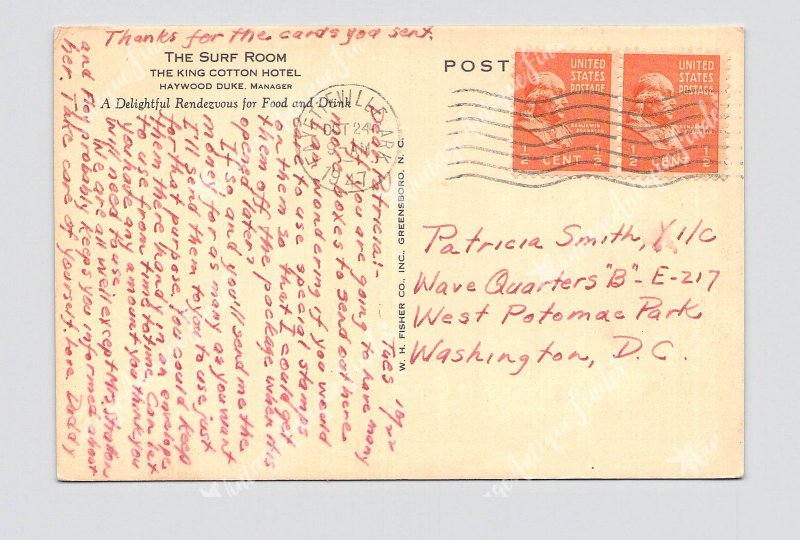 Thanks for the cards you sent.
THE SURF ROOM
THE KING COTTON HOTEL
HAYWOOD DUKE, MANAGER
A Delightful Rendezvous for Food and Drink
POST
UNITED
STATES
POSTAGE
BENJAMIN
FRANKLIN
1/2 CENT 1/2
UNITED
STATES
POSTAGE
BENJAMIN
FRANKLIN
1/2 CENT 1/2
FAYETTEVILLE ARK.
OCT 24
1947
W. H. FISHER CO., INC., GREENSBORO, N. C.
Tues
Dear Patricia:-
If you are going to have many
more boxes to send out here
am wondering if you would
care to use special stamps
on them so that I could get
them off the package when its
opened later?
If so and you'll send me the
money for as many as you want
I'll send them to you to use just
for that purpose. You could keep
them there handy in an envelope
to use from time to time. Can let
you have any amount you think you
will need to use.
We are all well except Mrs. Stratton
and Flop probably keeps you informed about
her. Take care of yourself love Daddy
Patricia Smith, Y 1/c
Wave Quarters "B" - E-217
West Potomac Park
Washington, D.C.